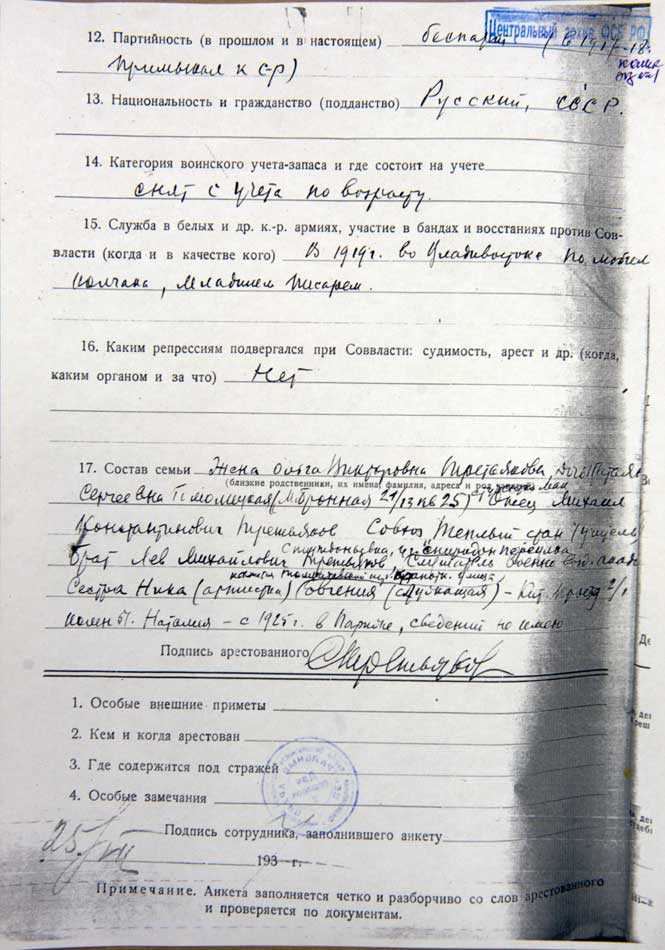 Центральный архив ФСБ РФ
12. Партийность (в прошлом и в настоящем) беспарт (в 1917-18
примыкал к с-р)
13. Национальность и гражданство (подданство) Русский, СССР.
14. Категория воинского учета-запаса и где состоит на учете
снят с учета по возрасту.
15. Служба в белых и др. к.-р. армиях, участие в бандах и восстаниях против Сов-
власти (когда и в качестве кого) В 1919г. во Владивостоке по мобил
Колчака, младшим писарем.
16. Каким репрессиям подвергался при Соввласти: судимость, арест и др. (когда,
каким органом и за что) Нет
17. Состав семьи Жена Ольга Викторовна Третьякова Дочь Татьяна
(близкие родственники, их имена, фамилия, адреса и род
Сергеевна Гомолицкая (М. Бронная 21/13 кв 25) Отец Михаил
Константинович Третьяков Совхоз Теплый стан
Брат Лев Михайлович Третьяков
Сестра Нина (артистка) Евгения (служащая) – Кит. проезд 2/1
Наталия – с 1925 г. в Париже, сведений не имею
Подпись арестованного СТретьяков
1. Особые внешние приметы
2. Кем и когда арестован
3. Где содержится под стражей
4. Особые замечания
Подпись сотрудника, заполнившего анкету
25/VII
193 г.
Примечание. Анкета заполняется четко и разборчиво со слов арестованного
и проверяется по документам.